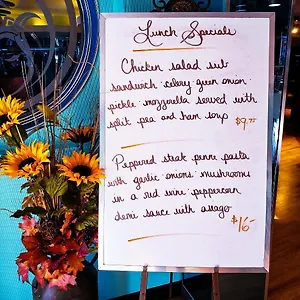 Lunch Specials
Chicken salad sub
sandwich · celery · green onion ·
pickle · mozzarella served with
split pea and ham soup $9.75
Peppered steak penne pasta
with garlic · onions · mushrooms
in a red wine · peppercorn
demi sauce with asiago
$16-